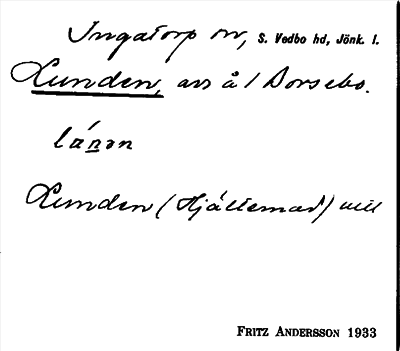 Ingatorp sn, S. Vedbo hd, Jönk. l.
Lunden, avs å 1 Dorsebo.
lánən
Lunden (Hjältemad) till
FRITZ ANDERSSON 1933